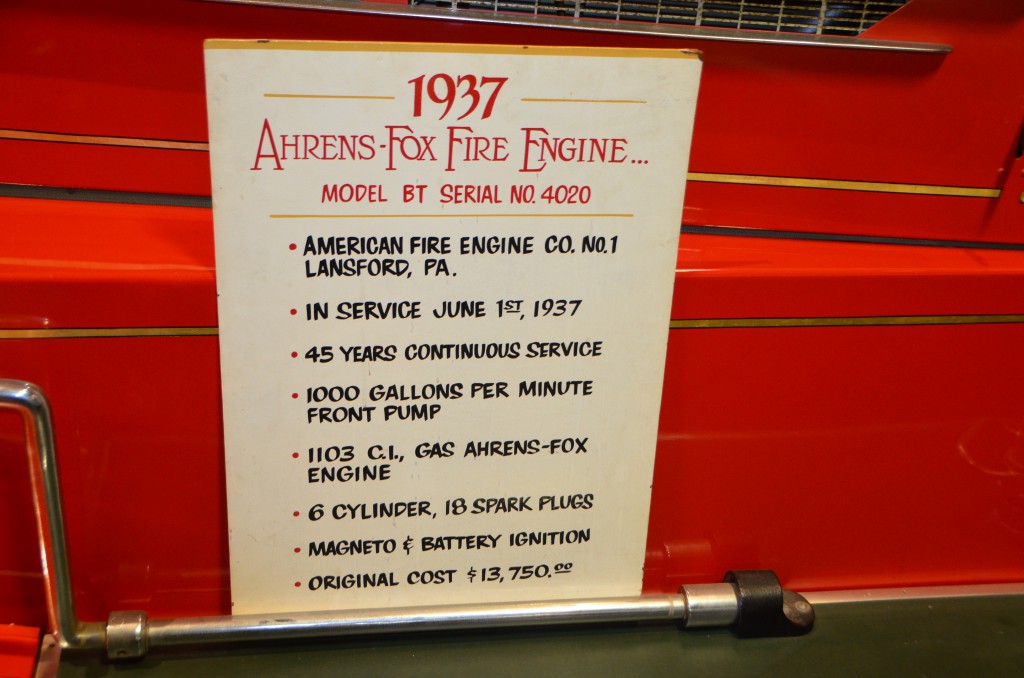 1937
AHRENS-FOX FIRE ENGINE...
MODEL BT SERIAL NO. 4020
• AMERICAN FIRE ENGINE CO. NO.1
LANSFORD, PA.
• IN SERVICE JUNE 1ST, 1937
• 45 YEARS CONTINUOUS SERVICE
• 1000 GALLONS PER MINUTE
FRONT PUMP
• 1103 C.I., GAS AHRENS-FOX
ENGINE
• 6 CYLINDER, 18 SPARK PLUGS
• MAGNETO & BATTERY IGNITION
• ORIGINAL COST $13,750.00